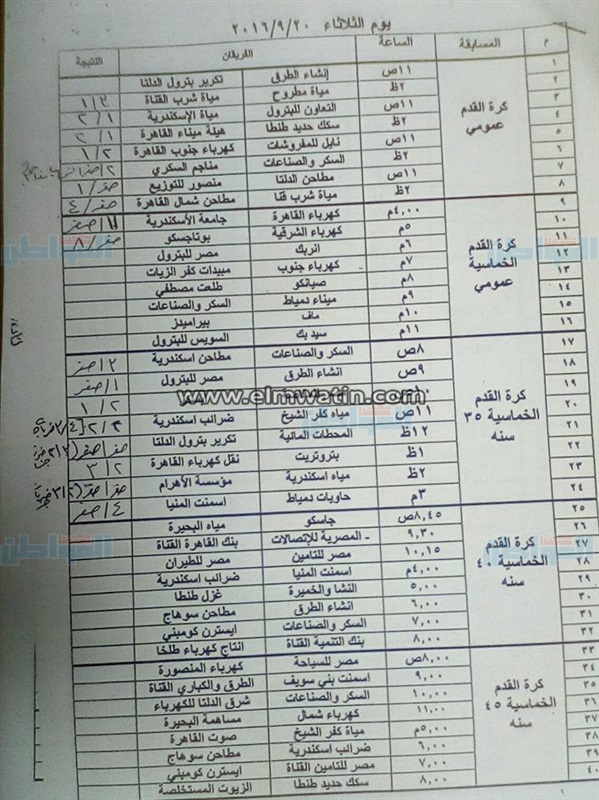 يوم الثلاثاء ٢٠١٦/٩/٢٠
م المسابقة الساعة الفريقان النتيجة
كرة القدم عمومي
١ ١١ص إنشاء الطرق تكرير بترول الدلتا
٢ ٢ظ مياة مطروح مياة شرب القناة ١/٣
٣ ١١ص التعاون للبترول مياة الإسكندرية ٢/١
٤ ٢ظ سكك حديد طنطا هيئة ميناء القاهرة ٢/١
٥ ١١ص نايل للمفروشات كهرباء جنوب القاهرة ١/٢
٦ ٢ظ السكر والصناعات مناجم السكري
٧ ١١ص مطاحن الدلتا منصور للتوزيع صفر/١
٨ ٢ظ مياة شرب قنا مطاحن شمال القاهرة صفر/٤
كرة القدم الخماسية عمومي
٩ ٤,٠٠م كهرباء القاهرة جامعة الأسكندرية ١١/صفر
١٠ ٥م كهرباء الشرقية بوتاجسكو صفر/٨
١١ ٦م انربك مصر للبترول
١٢ ٧م كهرباء جنوب مبيدات كفر الزيات
١٣ ٨م صيانكو طلعت مصطفي
١٤ ٩م ميناء دمياط السكر والصناعات
١٥ ١٠م ماف بيراميدز
١٦ ١١م سيد بك السويس للبترول
كرة القدم الخماسية ٣٥ سنه
١٧ ٨ص السكر والصناعات مطاحن اسكندرية ٢/صفر
١٨ ٩ص انشاء الطرق مصر للبترول ١/صفر
١٩ ١/٢
٢٠ ١١ص مياه كفر الشيخ ضرائب اسكندرية
٢١ ١٢ظ المحطات المائية تكرير بترول الدلتا
٢٢ ١ظ بتروتريت نقل كهرباء القاهرة ٣/٢
٢٣ ٢ظ مياه اسكندرية مؤسسة الأهرام
٢٤ ٣م حاويات دمياط اسمنت المنيا ٤/صفر
كرة القدم الخماسية ٤٠ سنه
٢٥ ٨,٤٥ص جاسكو مياه البحيرة
٢٦ ٩,٣٠ المصرية للإتصالات بنك القاهرة القناة
٢٧ ١٠,١٥ مصر للتامين مصر للطيران
٢٨ ٤,٠٠م اسمنت المنيا ضرائب اسكندرية
٢٩ ٥,٠٠ النشا والخميرة غزل طنطا
٣٠ ٦,٠٠ انشاء الطرق مطاحن سوهاج
٣١ ٧,٠٠ السكر والصناعات ايسترن كومبني
٣٢ ٨,٠٠ بنك التنمية القناة انتاج كهرباء طلخا
كرة القدم الخماسية ٤٥ سنه
٣٣ ٨,٠٠ص مصر للسياحة كهرباء المنصورة
٣٤ ٩,٠٠ اسمنت بني سويف الطرق والكباري القناة
٣٥ ١٠,٠٠ السكر والصناعات شرق الدلتا للكهرباء
٣٦ ١١,٠٠ كهرباء شمال مساهمة البحيرة
٣٧ ٥,٠٠م مياة كفر الشيخ صوت القاهرة
٣٨ ٦,٠٠ ضرائب اسكندرية مطاحن سوهاج
٣٩ ٧,٠٠ مصر للتامين القناة ايسترن كومبني
٤٠ ٨,٠٠ سكك حديد طنطا الزيوت المستخلصة
www.elmwatin.com
المواطن